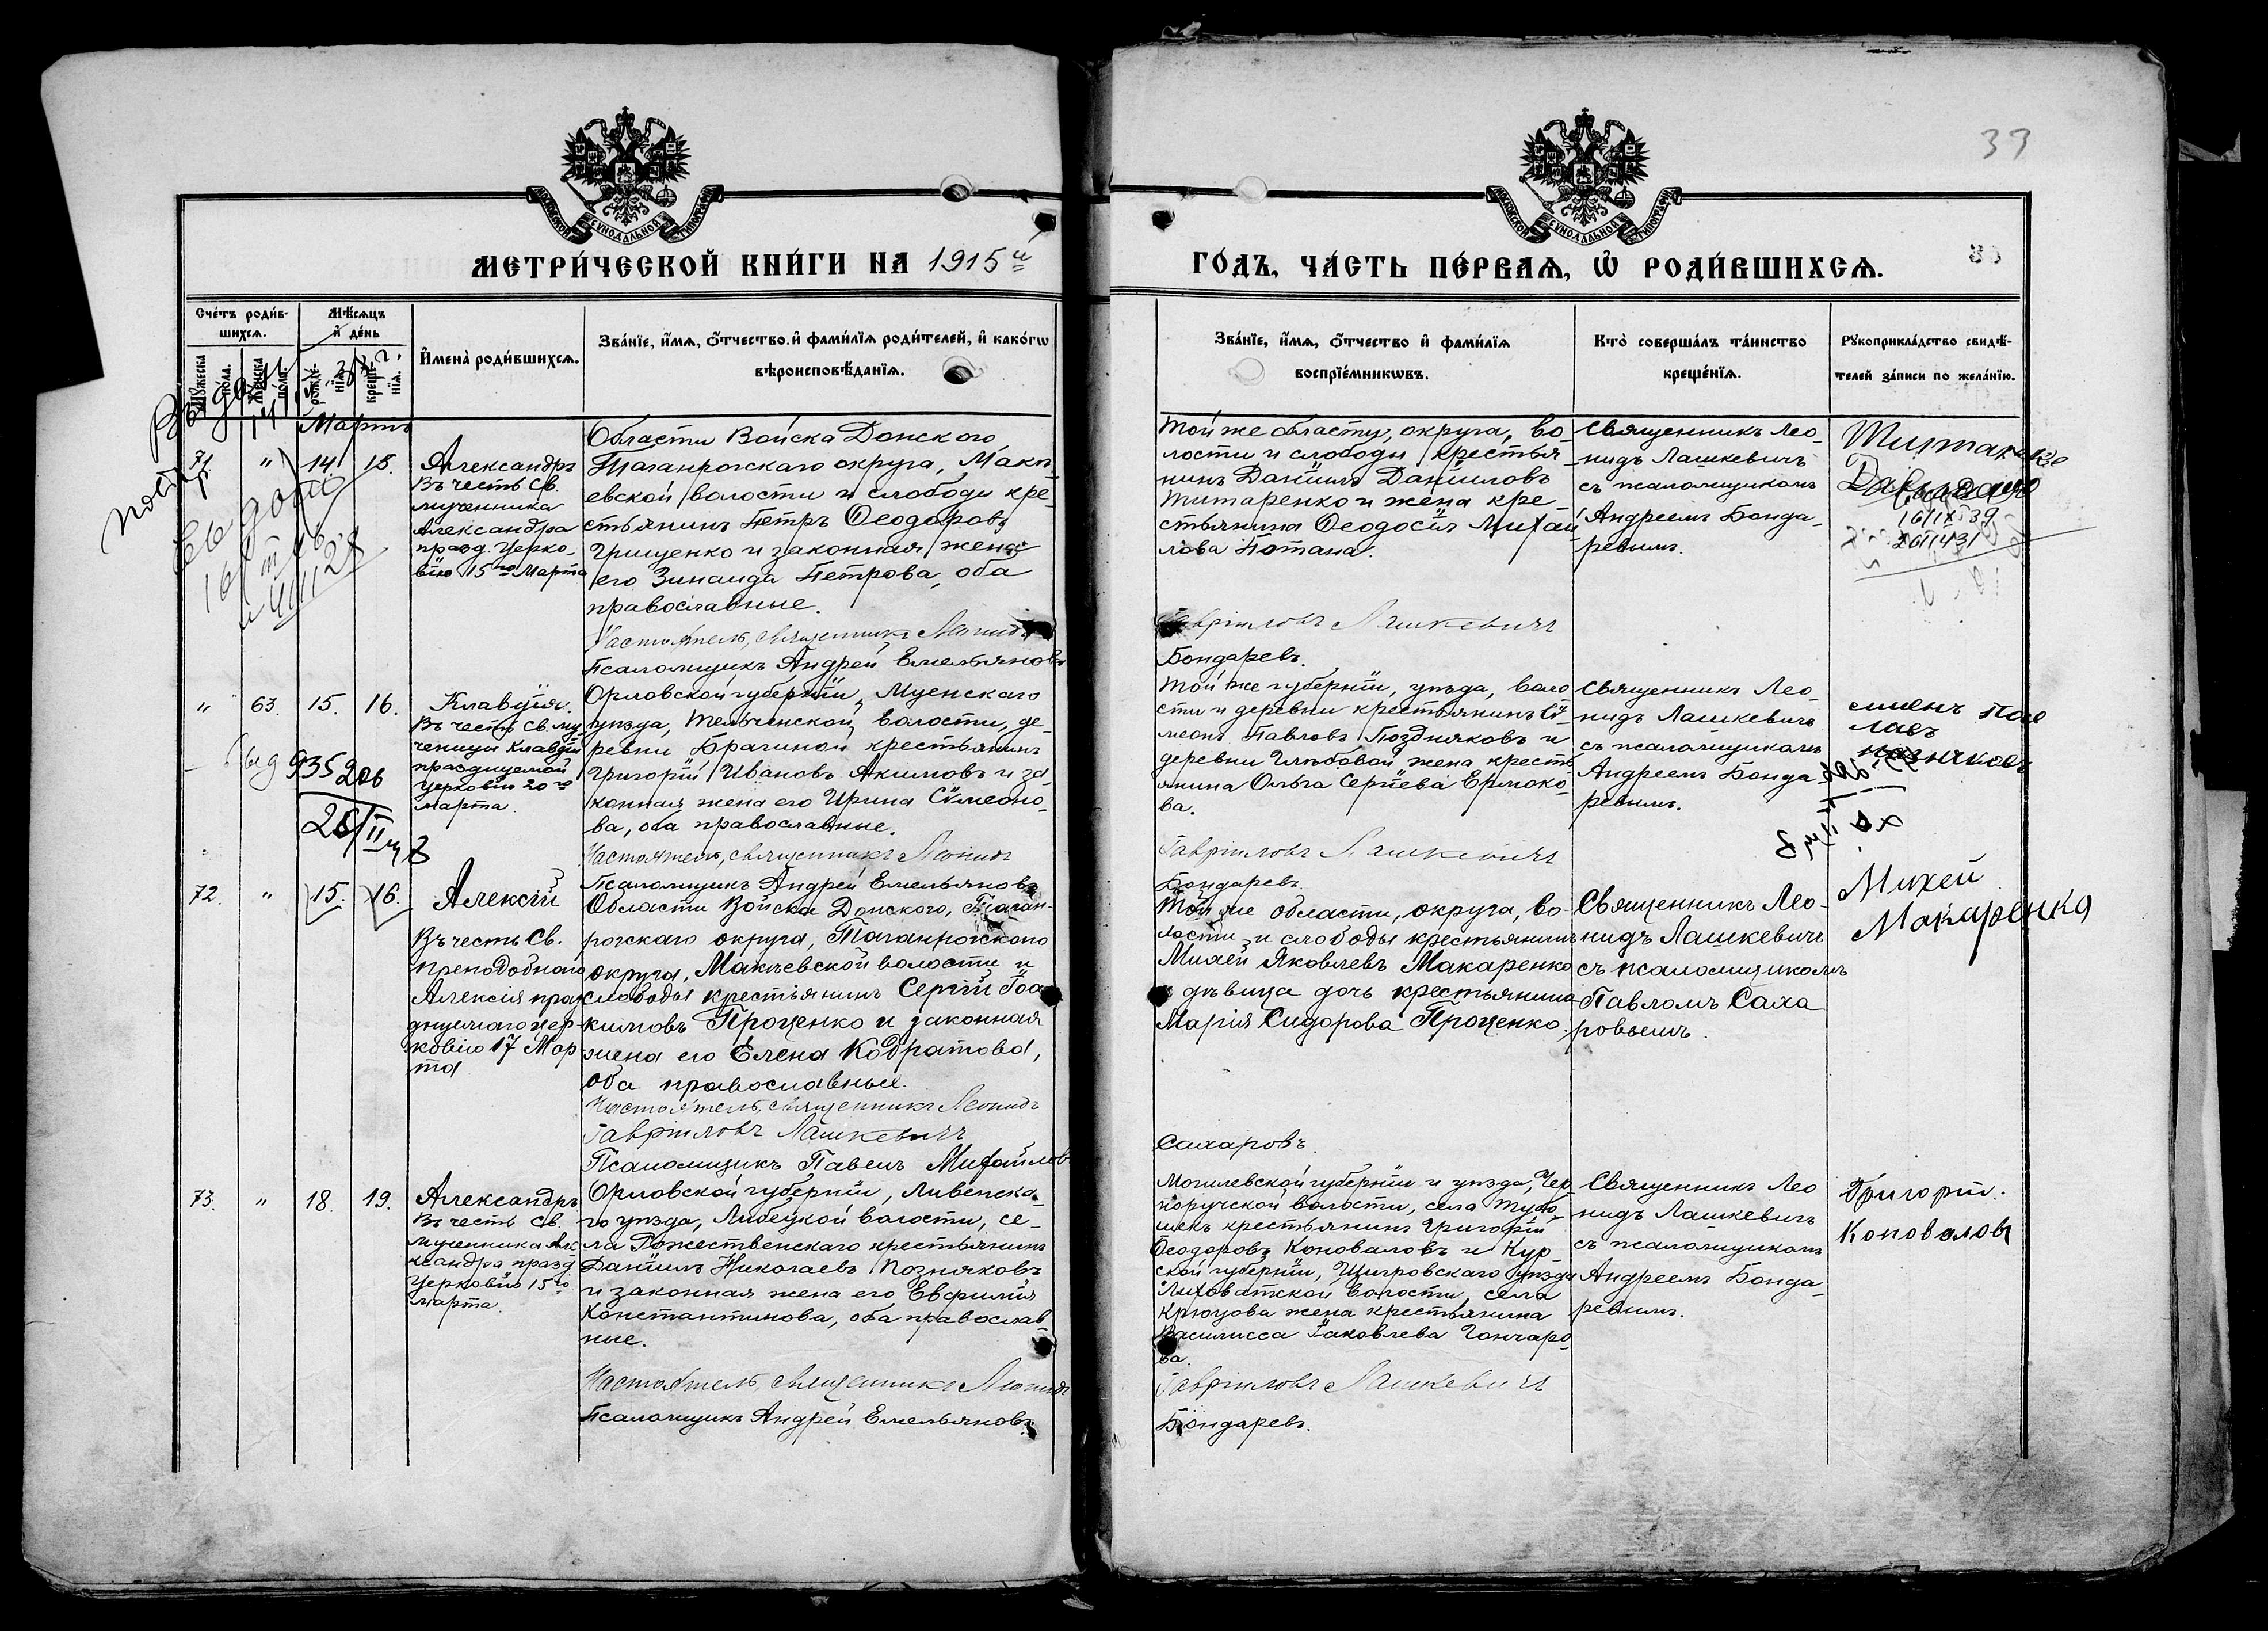 33
МОСКОВСКОЙ СѴНОДАЛЬНОЙ ТИПОГРАФІИ
МОСКОВСКОЙ СѴНОДАЛЬНОЙ ТИПОГРАФІИ
МЕТРИ́ЧЕСКОЙ КНИ́ГИ НА 1915 й
ГО́ДЪ, ЧА́СТЬ ПЕ́РВАѦ, Ѡ҆ РОДИ́ВШИХСѦ.
Сче́тъ роди́в-
шихсѧ.
Мѣ́сѧцъ
и҆ де́нь
Мꙋжеска
по́ла.
Же́нска
по́ла.
рожде-
нїѧ.
креще-
нїѧ.
И҆мена̀ роди́вшихсѧ.
Зва́нїе, и҆́мѧ, ѻ҆́тчество и҆ фами́лїѧ роди́телей, и҆ како́гѡ
вѣроисповѣ́данїѧ.
Зва́нїе, и҆́мѧ, ѻ҆́тчество и҆ фами́лїѧ
воспрїе́мникѡвъ.
Кто̀ соверша́лъ та́инство
креще́нїѧ.
Рꙋкоприкла́дство свидѣ́-
телей за́писи по жела́нїю.
Мартъ
71. " 14. 15.
Александръ
Въ честь Св.
мученика
Александра
празд. Церко-
вію 15го Марта
Области Войска Донского,
Таганрогскаго округа, Маке-
евской волости и слободы кре-
стьянинъ Петръ Ѳеодоровъ
Грищенко и законная жена
его Зинаида Петрова, оба
православные.
Настоятель, священникъ Леонидъ
Псаломщикъ Андрей Емельяновъ
Той же области, округа, во-
лости и слободы крестья-
нинъ Даніилъ Данииловъ
Титаренко и жена кре-
стьянина Ѳеодосія Михаи-
лова Потана.
Гавріиловъ Лашкевичъ
Бондаревъ.
Священникъ Лео-
нидъ Лашкевичъ
съ псаломщикомъ
Андреемъ Бонда-
ревымъ.
" 63. 15. 16.
выд 935206
Клавдія.
Въ честь Св. му-
ченицы Клавдіи
празднуемой
Церковію 20го
марта.
Орловской губерніи, Мценскаго
уѣзда, Тельченской волости, де-
ревни Брагиной крестьянинъ
Григорій Ивановъ Акимовъ и за-
конная жена его Ирина Сѵмеоно-
ва, оба православные.
Настоятель, священникъ Леонидъ
Псаломщикъ Андрей Емельяновъ
Той же губерніи, уѣзда, воло-
сти и деревни крестьянинъ Сѵ-
меонъ Павловъ Поздняковъ и
деревни Глѣбовой жена кресть-
янина Ольга Сергіева Ермоко-
ва.
Гавріиловъ Лашкевичъ
Бондаревъ.
Священникъ Лео-
нидъ Лашкевичъ
съ псаломщикомъ
Андреемъ Бонда-
ревымъ.
72. " 15. 16.
Алексій
Въ честь Св.
преподобнаго
Алексія праз
днуемаго цер-
ковію 17 Мар
та
Области Войска Донского, Таган-
рогскаго округа, Таганрогскаго
округа, Макѣевской волости и
слободы крестьянинъ Сергій Іоа
кимовъ Проценко и законная
жена его Елена Кодратова,
оба православные.
Настоятель, священникъ Леонидъ
Гавріиловъ Лашкевичъ
Псаломщикъ Павелъ Михаиловъ
Той же области, округа, во-
лости и слободы крестьянинъ
Михей Яковлевъ Макаренко
и дѣвица дочь крестьянина
Марія Сидорова Проценко.
Сахаровъ.
Священникъ Лео-
нидъ Лашкевичъ
съ псаломщикомъ
Павломъ Саха
ровымъ.
Михей
Макаренко
73. " 18. 19.
Александръ
Въ честь Св.
мученика Але
ксандра празд.
Церковію 15го
марта.
Орловской губерніи, Ливенска-
го уѣзда, Любецкой волости, се-
ла Рожественскаго крестьянинъ
Даніилъ Николаевъ Позняковъ
и законная жена его Евфимія
Константинова, оба православ-
ные.
Настоятель, священникъ Леонидъ
Псаломщикъ Андрей Емельяновъ
Могилевской губерніи и уѣзда, Чер
норучской волости, села
крестьянинъ Григорій
Ѳеодоровъ Коноваловъ и Кур-
ской губерніи, Щигровскаго уѣзда
Липоватской волости, села
Крюцова жена крестьянина
Василисса Іаковлева Гончаро-
ва.
Гавріиловъ Лашкевичъ
Бондаревъ.
Священникъ Лео
нидъ Лашкевичъ
съ псаломщикомъ
Андреемъ Бонда-
ревымъ.
Григорій
Коноваловъ